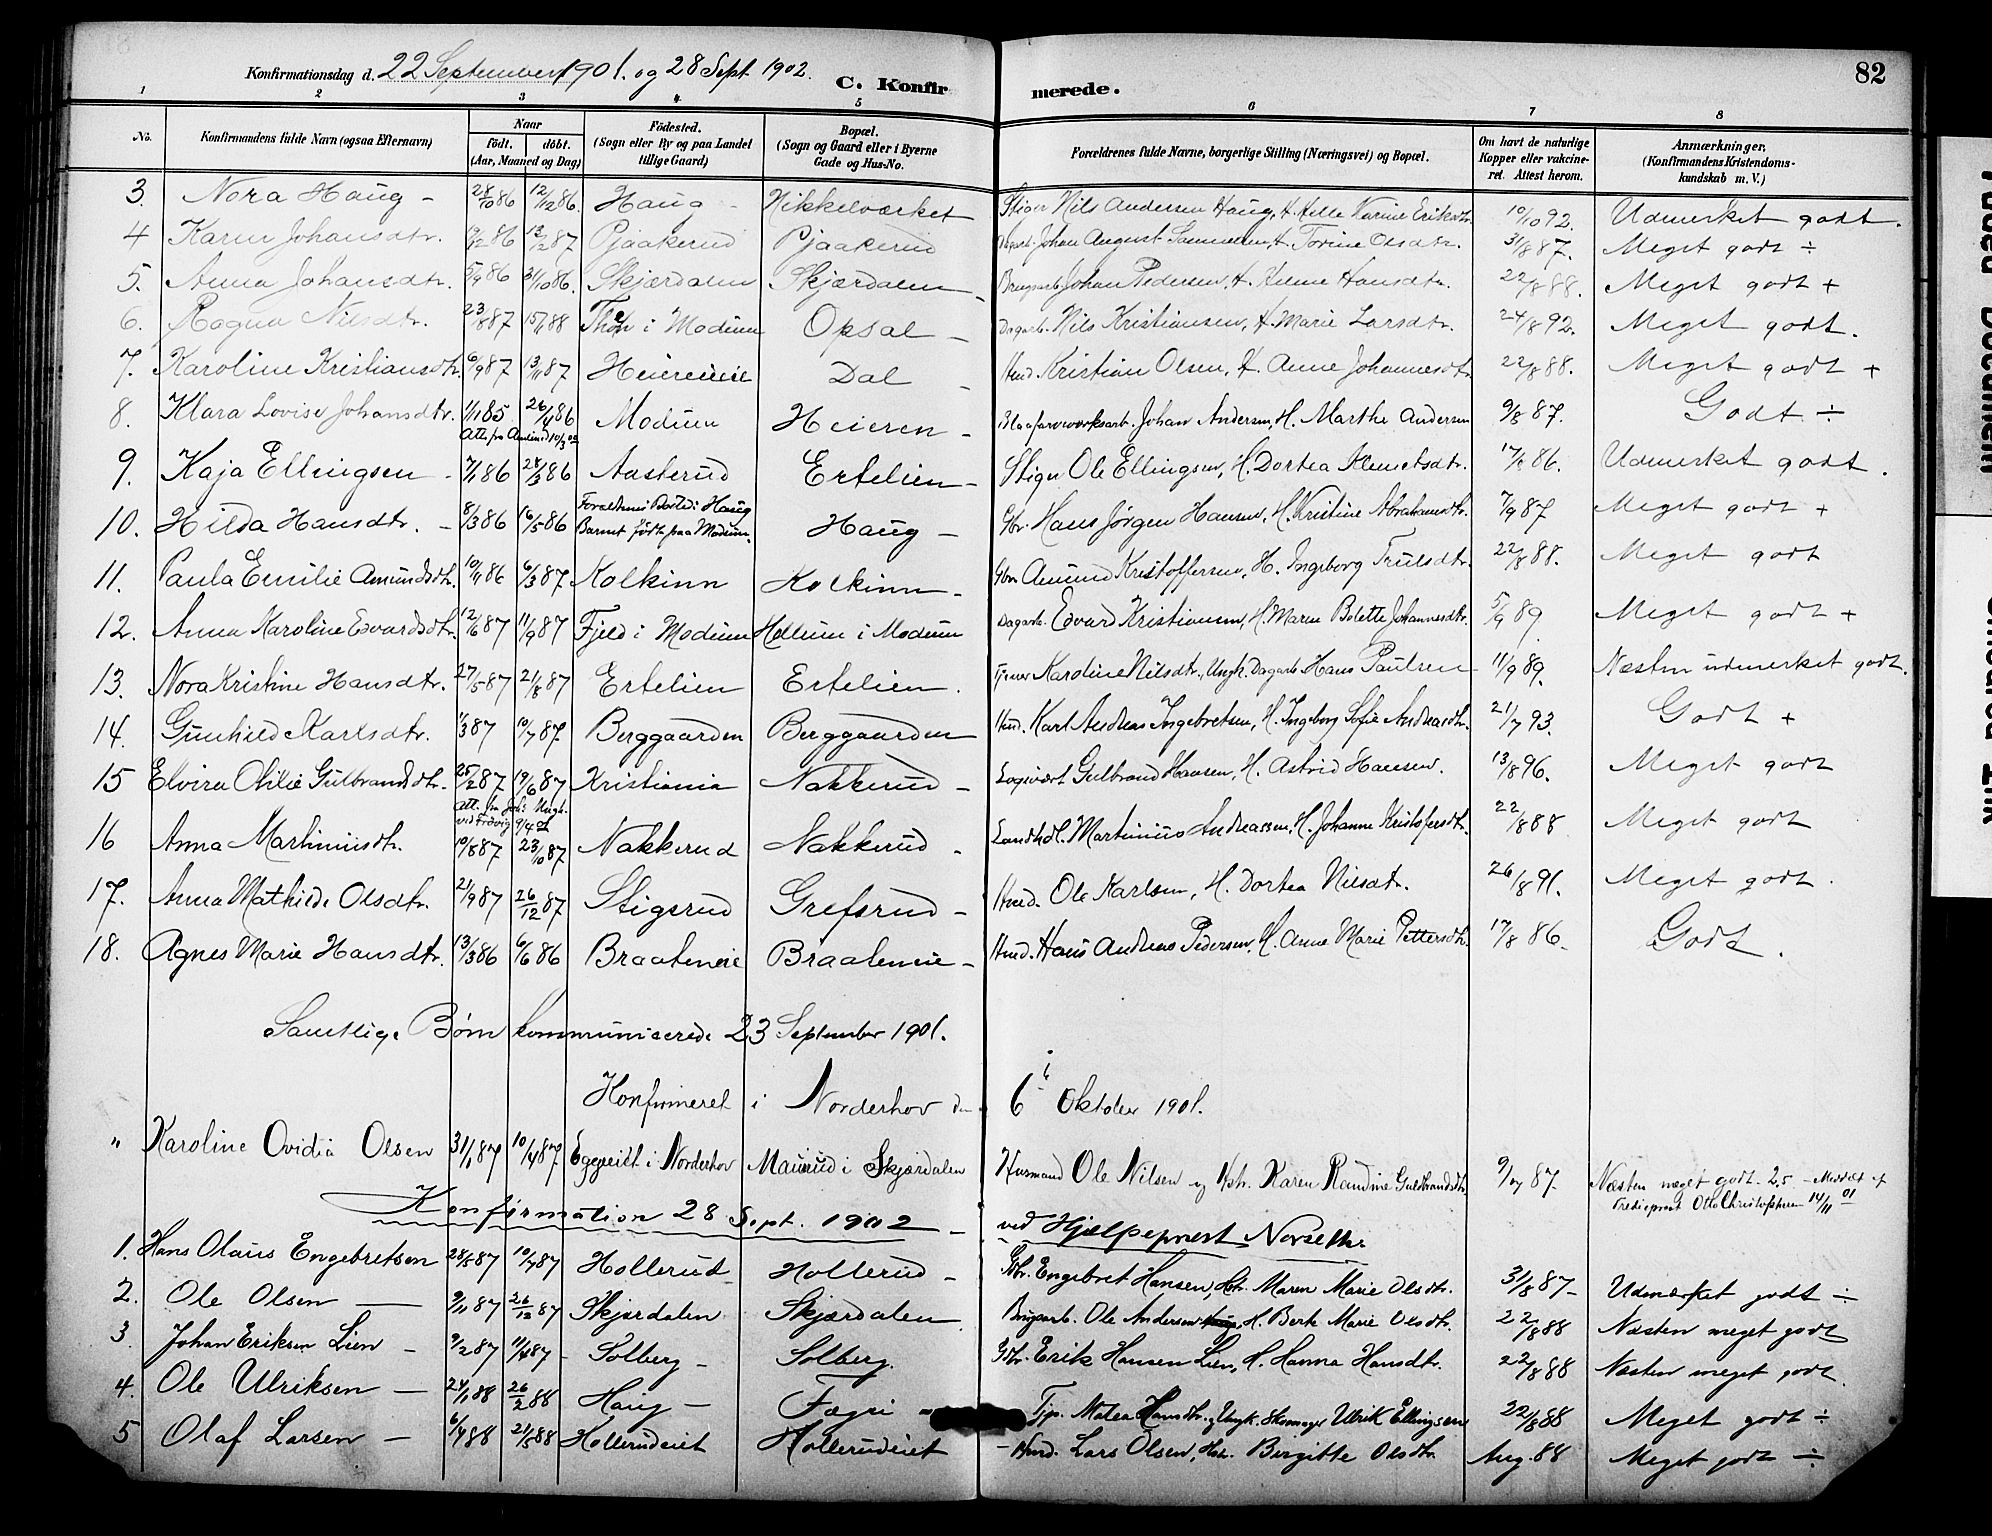 82
Konfirmationsdag d. 22 September 1901. og 28 Sept 1902. C. Konfirmerede.
1 2 3 4 5 6 7 8
No. Konfirmandens fulde Navn (ogsaa Efternavn) Naar født. døbt. (Aar, Maaned og Dag) Födested. (Sogn eller By og paa Landet tillige Gaard) Bopæl. (Sogn og Gaard eller i Byerne Gade og Hus-No. Forældrenes fulde Navne, borgerlige Stilling (Næringsvei) og Bopæl. Om havt de naturlige Kopper eller vakcineret. Attest herom. Anmærkninger. (Konfirmandens Kristendomskundskab m. V.)
3. Nora Haug - 28/10 86 12/12 86. Haug - Nikkelværket Stiger Nils Andersen Haug, H. Helle Karine Eriksdtr. 10/10 92. Udmerket godt.
4 Karen Johansdtr. 19/12 86 13/2 87 Pjaakerud Pjaakerud Johan August H. Torine Olsdtr. 31/8 87. Meget godt ÷
5. Anna Johansdtr. 5/9 86 31/10 86. Skjærdalen Skjærdalen Brugsarb. Johan Pedersen, H. Hansdtr. 22/8 88. Meget godt +
6. Ragna Nilsdtr. 23/8 87 15/1 88 i Modum Opsal - Dagarb. Nils Kristiansen, H. Marie Larsdtr. 24/8 92. Meget godt.
7. Karoline Kristiansdtr. 6/9 87 13/11 87 Heiereneie Dal - Husd. Kristian Olsen, H. Anne Johannesdtr 22/8 88. Meget godt +
8. Klara Lovise Johansdtr. 1/1 85 26/4 86 Modum Heieren - Blaafarveværksarb. Johan Andersen, H. Marthe Andersen 9/8 87. Godt ÷
9. Kaja Ellingsen - 7/1 86 28/3 86 Aasterud Ertelien - Stiger Ole Ellingsen, H. Dortea Klemetsdtr. 17/8 86. Udmerket godt.
10. Hilda Hansdtr. - 8/3 86 16/5 86 Forældrene i Haug Barnet født paa Modum. Haug - Gbr. Hans Jørgen Hansen, H. Kristine Abrahamsdtr. 7/9 87 Meget godt +
11. Paula Emilie Amundsdtr. 10/11 86 6/3 87 Kolkinn Kolkinn - Gbr. Amund Kristoffersen, H. Ingeborg Trulsdtr. 22/8 88. Meget godt
12. Anna Karoline Edvardsdtr. 12/6 87 11/9 87 Fjeld i Modum Hellum i Modum Dagarb. Edvard Kristiansen, H. Maren Bolette Johannesdtr. 5/9 89 Meget godt +
13. Nora Kristine Hansdtr. 27/5 87 21/8 87 Ertelien Ertelien. Karoline Nilsdtr., Ungk. Dagarb Hans Paulsen 11/9 89. Næsten udmerket godt.
14. Gunhild Karlsdtr. 1/3 87 10/7 87. Berggaarden Berggaarden Husd. Karl Andreas Ingebretsen, H. Ingeborg Sofie Andreasdtr. 21/7 93. Godt +
15 Elvira Otilie Gulbrandsdtr. 25/2 87 19/6 87 Kristiania Nakkerud - Logivært Gulbrand Hansen, H. Astrid Hansen. 13/8 96. Meget godt
16 Anna Martiniusdtr. 10/8 87 23/10 87 Nakkerud Nakkerud - Landhdl. Martinius Andreassen, H. Johanne Kristofersdtr. 22/8 88 Meget godt
17. Anna Mathilde Olsdtr. 21/9 87 26/12 87 Stigsrud Grefsrud - Husd. Ole Karlsen, H. Dortea Nilsdtr. 26/8 91. Meget godt.
18. Agnes Marie Hansdtr. 13/3 86 6/6 86 Braateneie Braateneie - Husd. Hans Andreas Pedersen, H. Anne Marie Pettersdtr. 17/8 86. Godt.
Samtlige Børn kommuniserede 23 September 1901.
Konfirmeret i Norderhov den 6 Oktober 1901.
" Karoline Ovidia Olsen 31/1 87 10/4 87 Eggeeiet i Norderhov Maurud i Skjærdalen Husmand Ole Nilsen og Hstr. Karen Randine Gulbrandsdtr. 9/7 87. Næsten meget godt. 2,5 - Meddelt af
Fredieprest Otto Christophersen 14/11 01
Konfirmation 28 Sept. 1902 - ved Hjælpeprest Norseth.
1. Hans Olaus Engebretsen 28/5 87 10/7 87 Hollerud Hollerud - Gbr. Engebret Hansen, Hstr. Maren Marie Olsdtr. 31/8 87- Udmærket godt ÷
2. Ole Olsen - 9/11 87 26/12 87 Skjærdalen Skjærdalen Brugsarb. Ole Andersen, H. Berte Marie Olsdtr. 22/8 88 Næsten meget godt
3 Johan Eriksen Lien - 9/2 87 11/4 87 - Solberg - Solberg. Gbr. Erik Hansen Lien, H. Hanna Hansdtr. 22/8 88 Næsten meget godt.
4. Ole Ulriksen - 24/1 88 26/2 88 Haug - Fagri - Tjp. Matea Hansdtr. og Ungk. Skomager Ulrik Ellingsen 22/8 88 Meget godt ÷
5 Olaf Larsen - 6/4 88 21/5 88 Holleruseiet Holleruseiet - Husd. Lars Olsen, Hstr. Birgitte Olsdtr. Aug. 88 Meget godt ÷